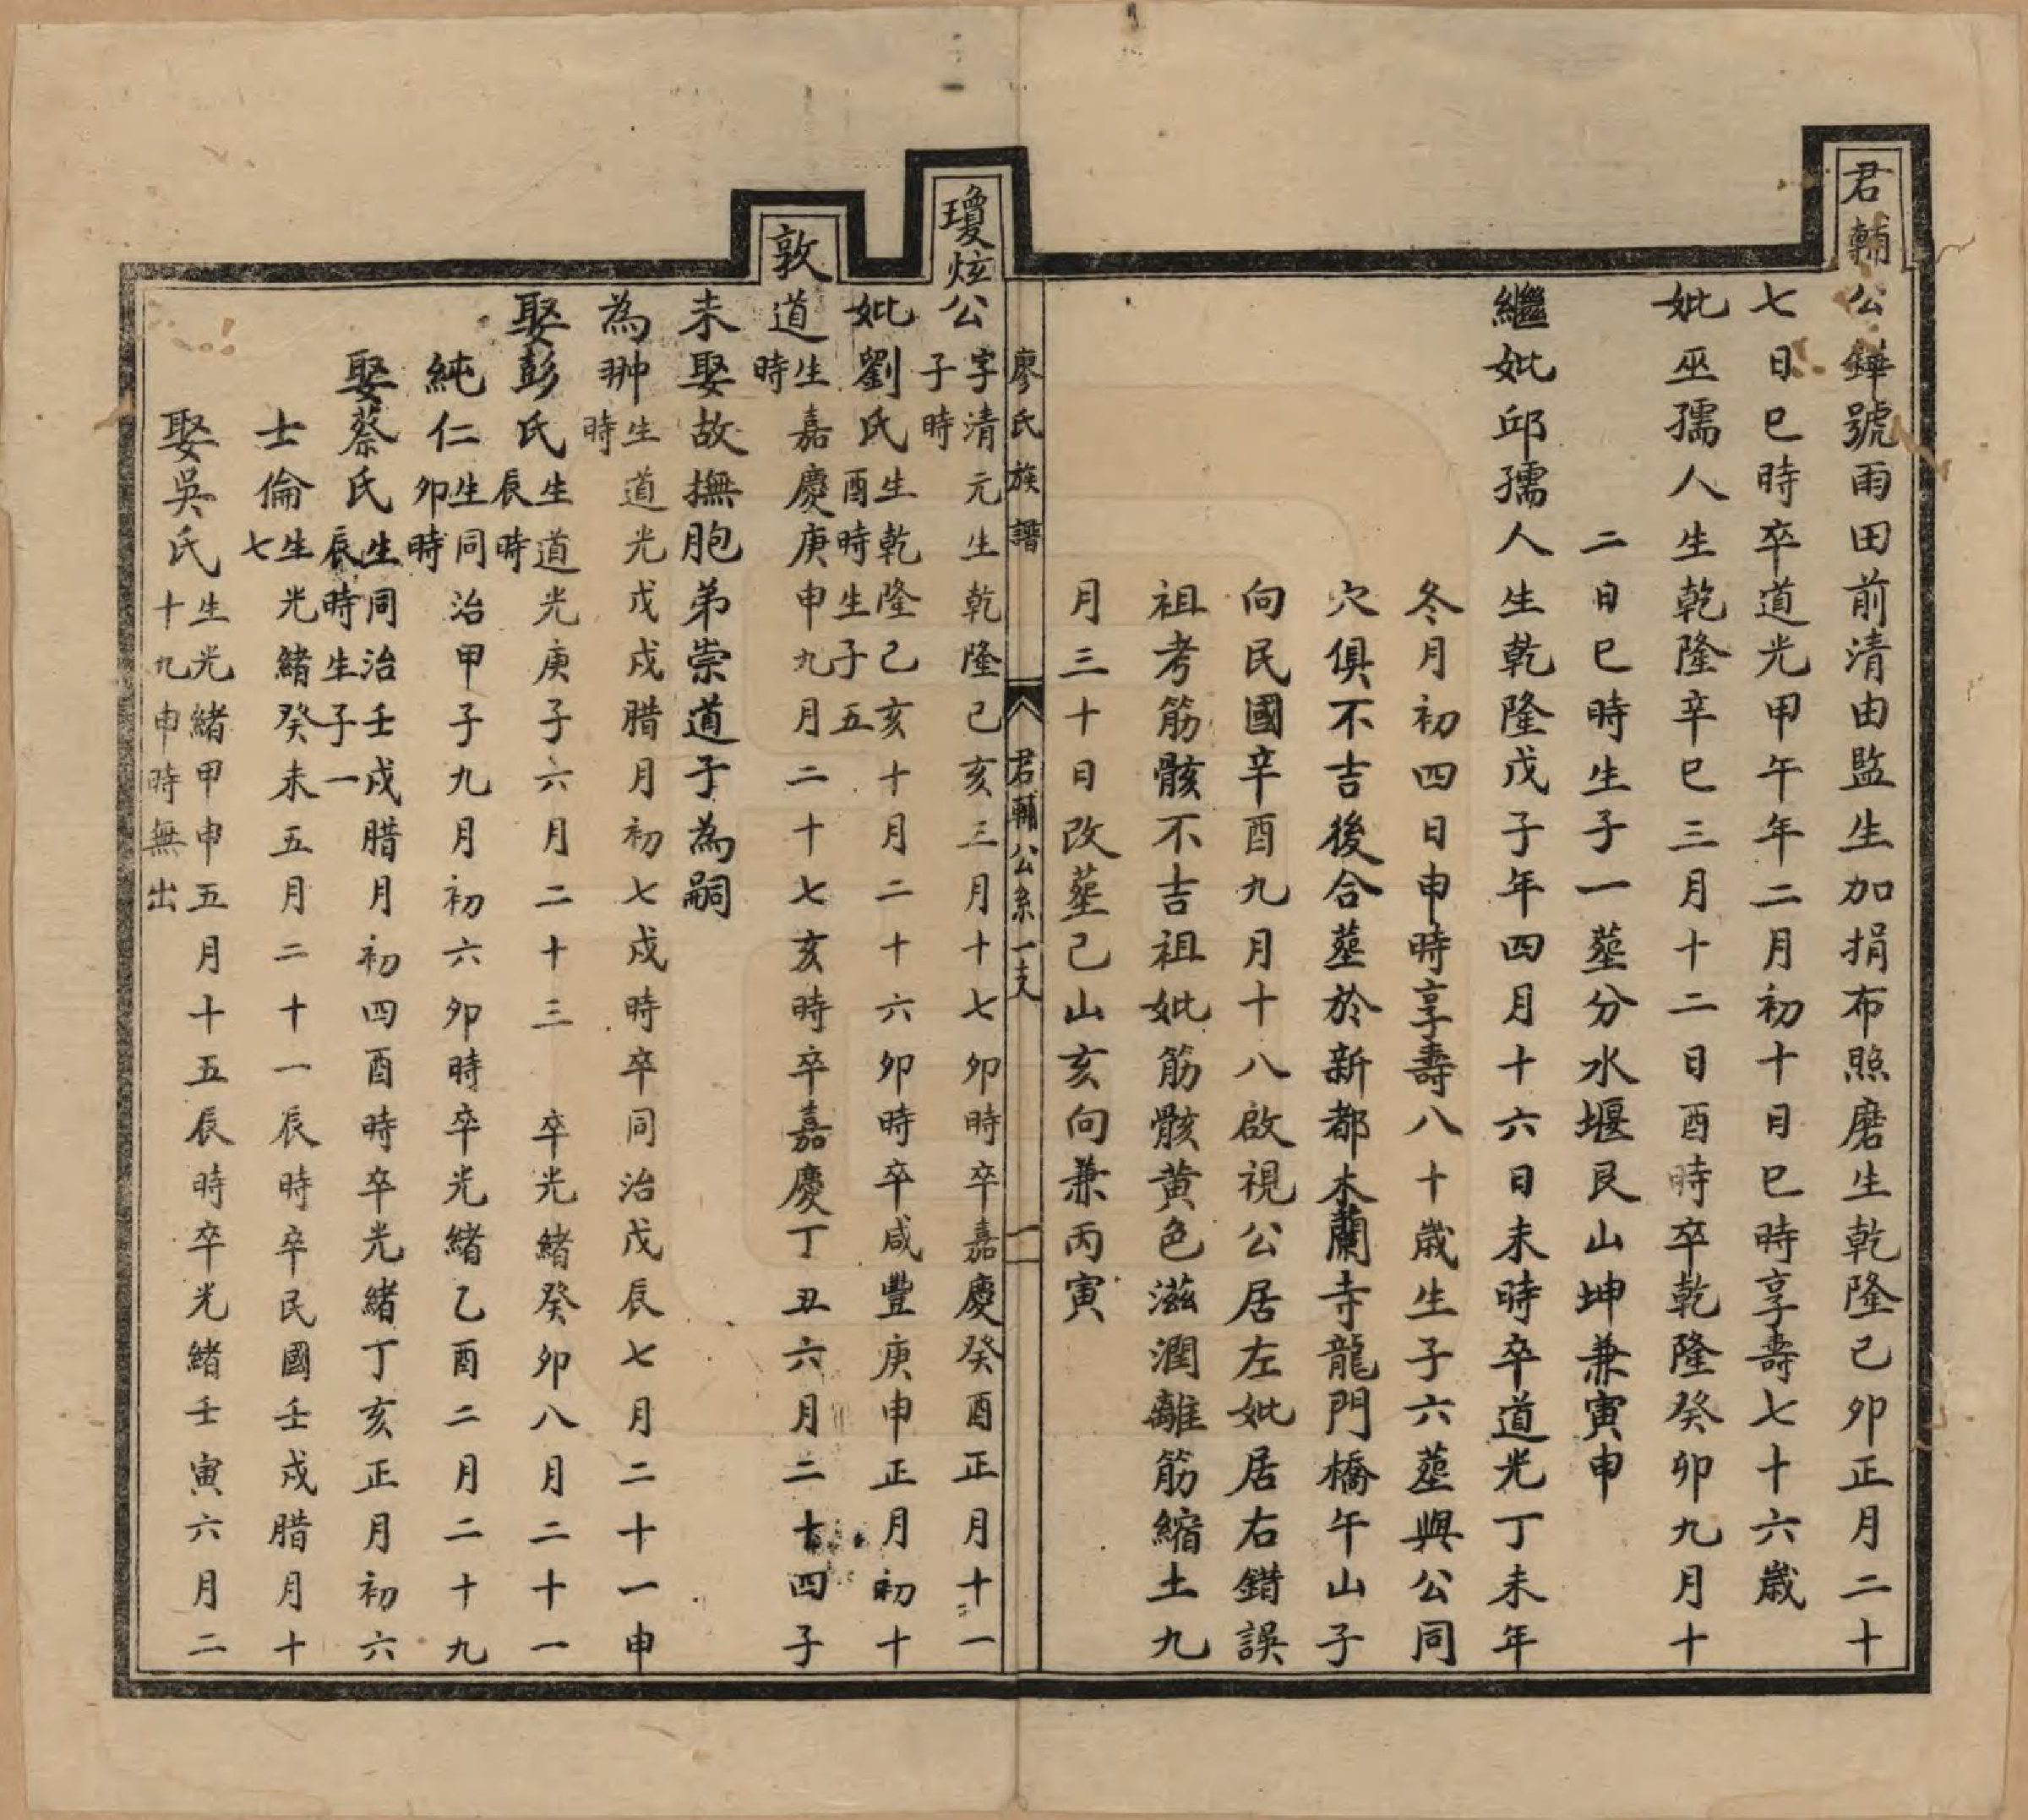 君輔公鏵號雨田前清由監生加捐布照磨生乾隆己卯正月二十
七日巳時卒道光甲午年二月初十日巳時享壽七十六歲
妣巫孺人生乾隆辛巳三月十二日酉時卒乾隆癸卯九月十
二日巳時生子一塟分水堰艮山坤兼寅申
繼妣邱孺人生乾隆戊子年四月十六日未時卒道光丁未年
冬月初四日申時享壽八十歲生子六塟與公同
穴俱不吉後合塟於新都木蘭寺龍門橋午山子
向民國辛酉九月十八啟視公居左妣居右錯誤
祖考筋骸不吉祖妣筋骸黃色滋潤離筋縮土九
月三十日改塟己山亥向兼丙寅
廖氏族譜 君輔公系一支 一
瓊炫公字清元生乾隆己亥三月十七卯時卒嘉慶癸酉正月十一
子時
妣劉氏生乾隆己亥十月二十六卯時卒咸豐庚申正月初十
酉時生子五
敦道生嘉慶庚申九月二十七亥時卒嘉慶丁丑六月二十四子
時
未娶故撫胞弟崇道子為嗣
為翀生道光戊戌腊月初七戌時卒同治戊辰七月二十一申
時
娶彭氏生道光庚子六月二十三 卒光緒癸卯八月二十一
辰時
純仁生同治甲子九月初六卯時卒光緒乙酉二月二十九
卯時
娶蔡氏生同治壬戌腊月初四酉時卒光緒丁亥正月初六
辰時生子一
士倫生光緒癸未五月二十一辰時卒民國壬戌腊月十
七
娶吳氏生光緒甲申五月十五辰時卒光緒壬寅六月二
十九申時無出